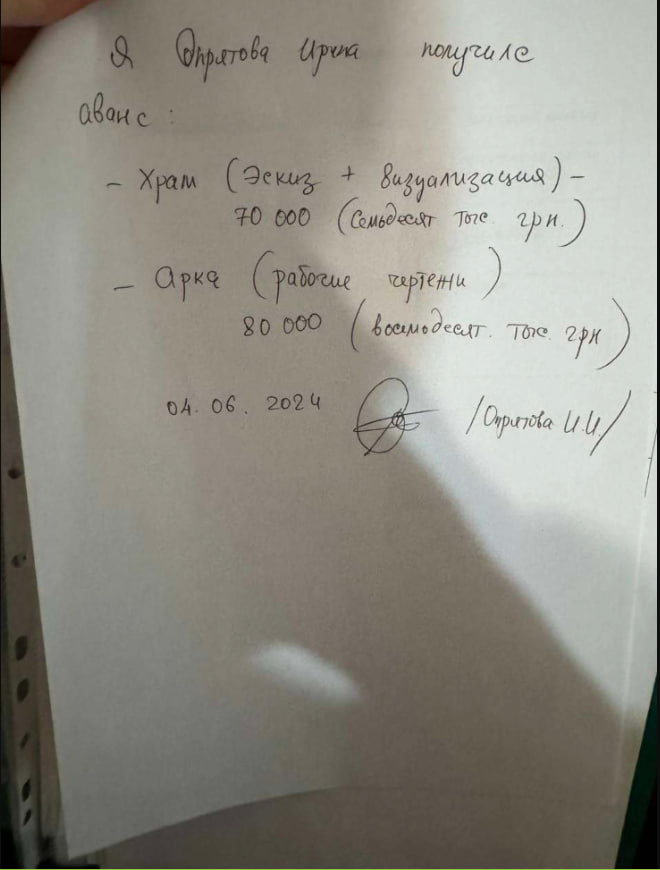 Я Опрятова Ирина получила
аванс:
- Храм (Эскиз + визуализация) -
70 000 (Семьдесят тыс. грн.)
- Арка (рабочие чертежи)
80 000 (восемьдесят. тыс. грн)
04. 06. 2024 /Опрятова И.И./